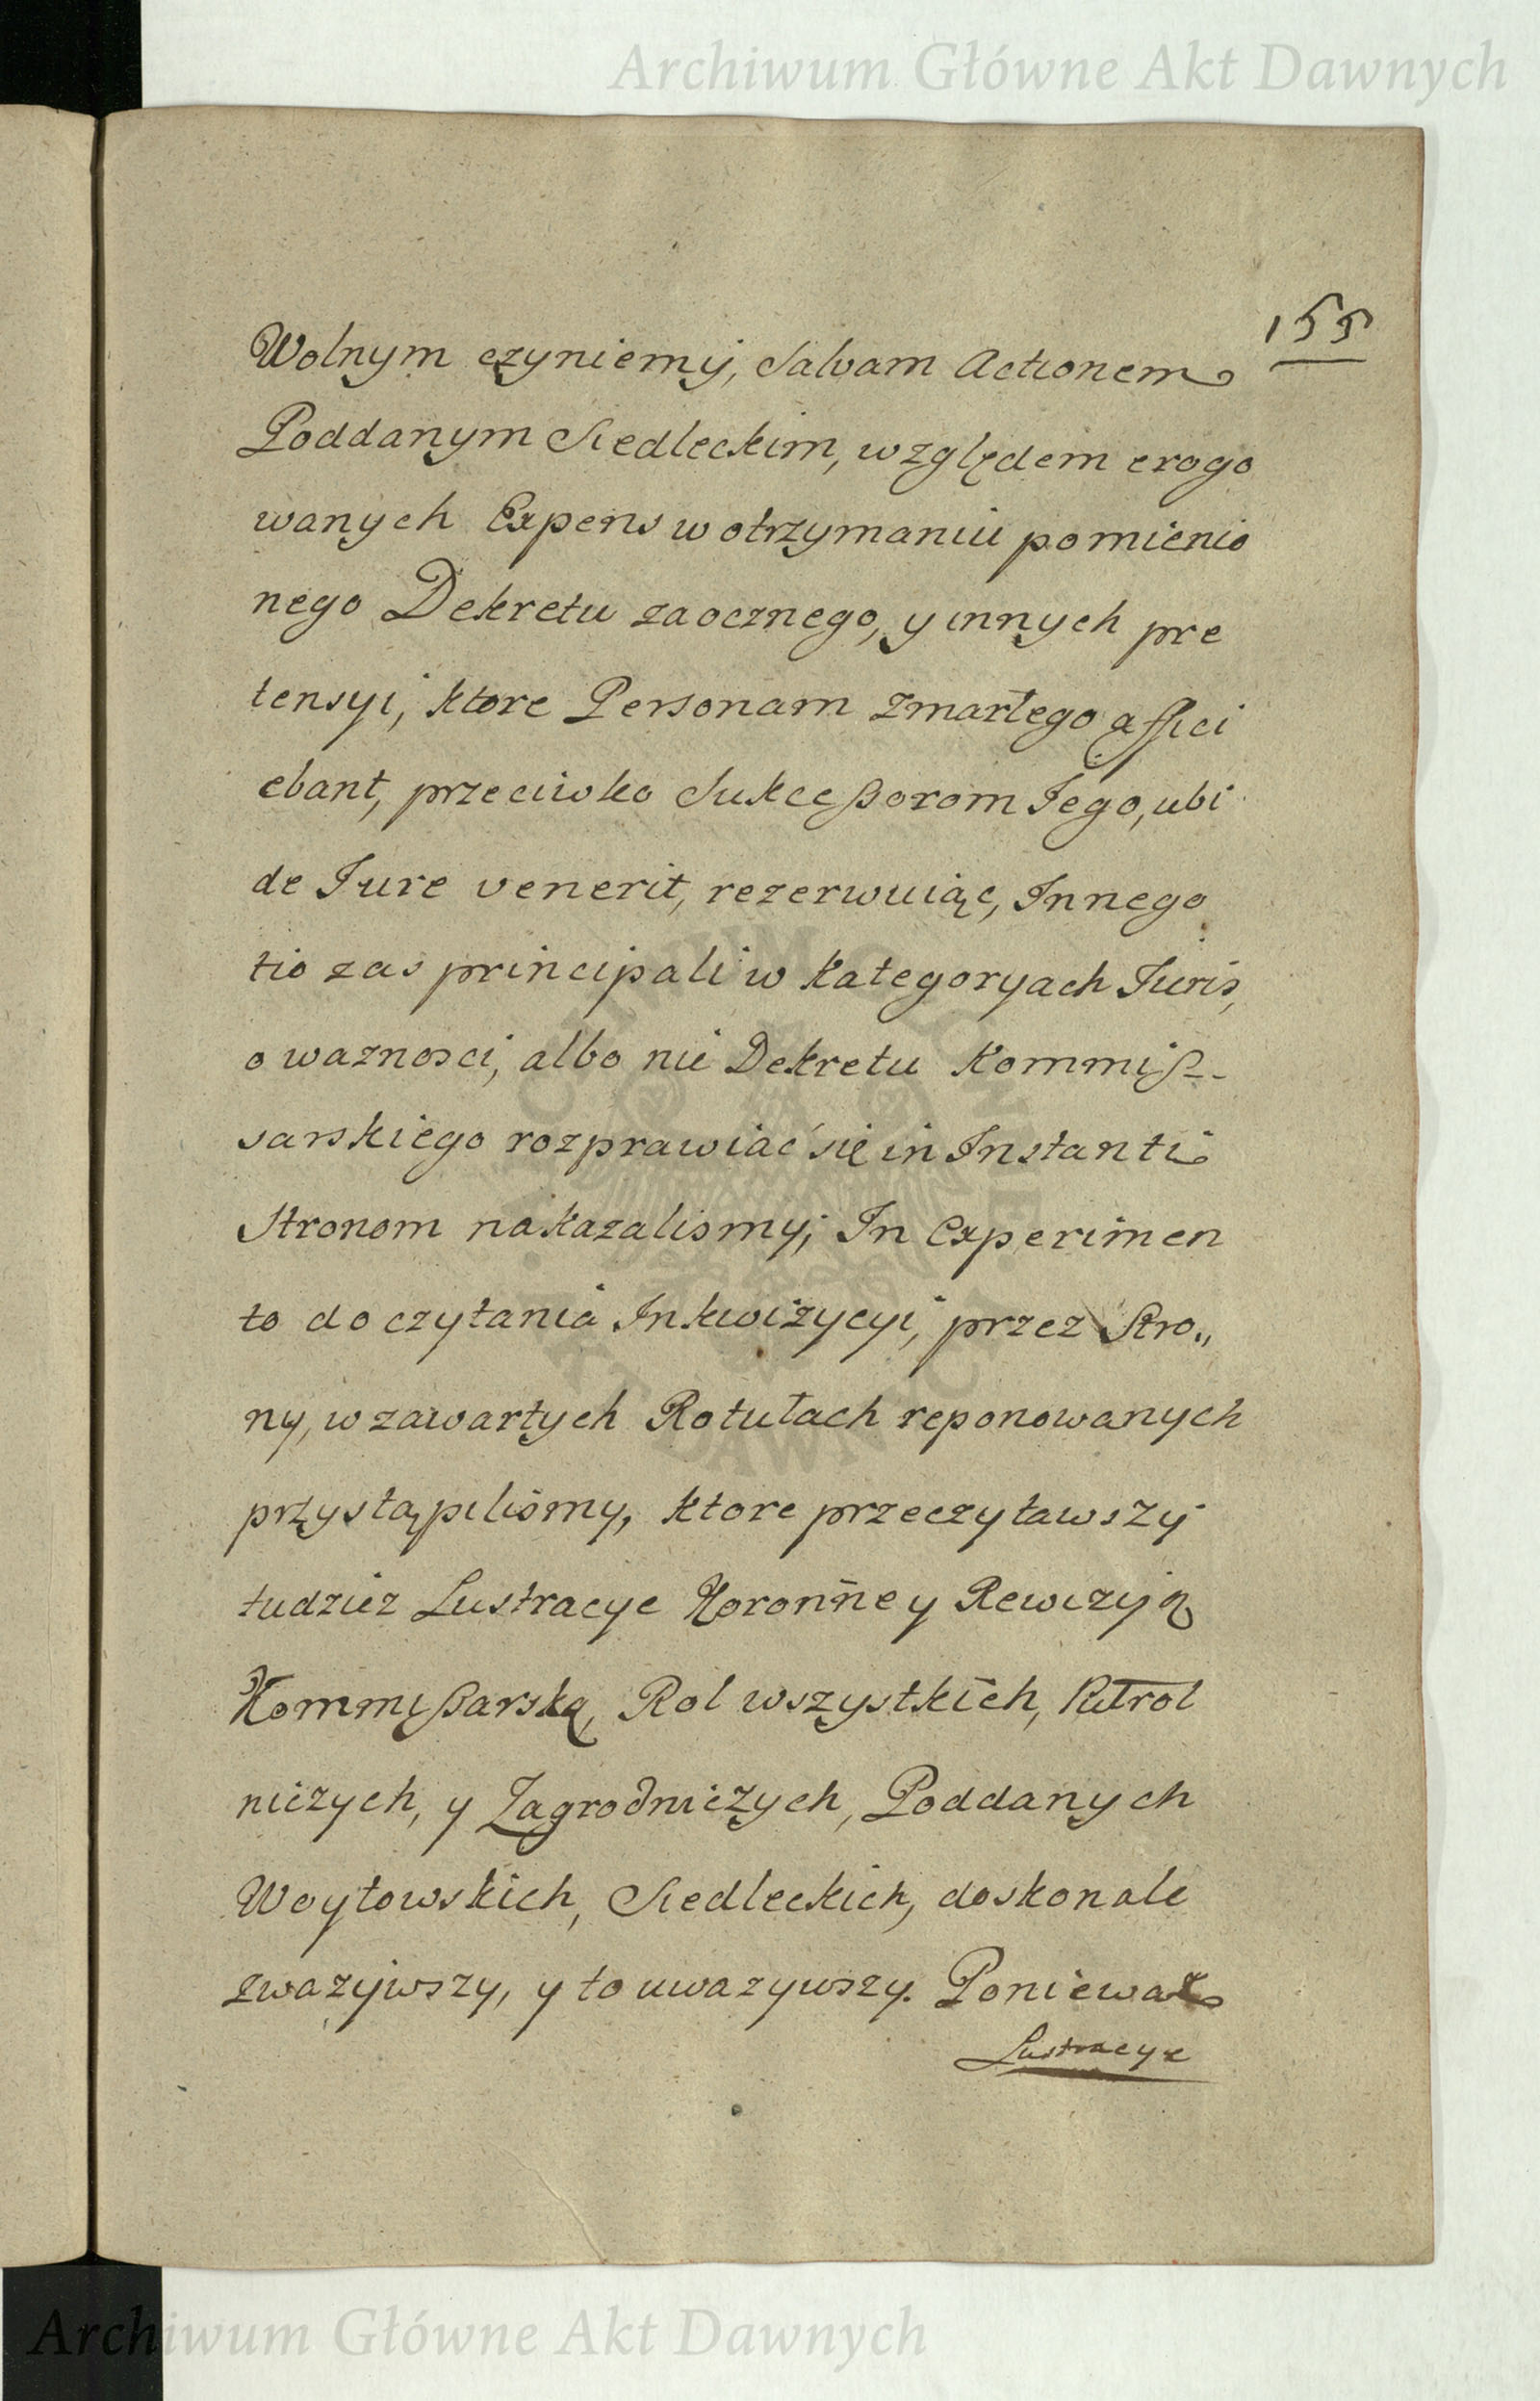 Archiwum Główne Akt Dawnych
155
Wolnym czyniemy, Salvam Actionem
Poddanym Siedleckim, względem erogo
wanych Expens w otrzymaniu pomienio
nego Dekretu zaocznego, y innych pre
tensyi, ktore Personam zmarłego affici
ebant, przeciwko Sukceßorom Jego, ubi
de Jure venerit, rezerwuiąc, In nego
tio zas principali w kategoryach Juris,
o waznosci, albo nie Dekretu Kommiß-
sarskiego rozprawiać się in Instanti
Stronom nakazalismy; In Experimen
to do czytania Inkwizycyi, przez Stro„
ny, w zawartych Rotułach reponowanych
przystąpiliśmy, ktore przeczytawszy
tudziez Lustracye Koronne y Rewizyją
Kommißarską, Rol wszystkich, Pułrol
niczych, y Zagrodniczych, Poddanych
Woytowskich, Siedleckich, doskonale
zwazywszy, y to uwazywszy. Poniewaz
Lustracye
Archiwum Główne Akt Dawnych